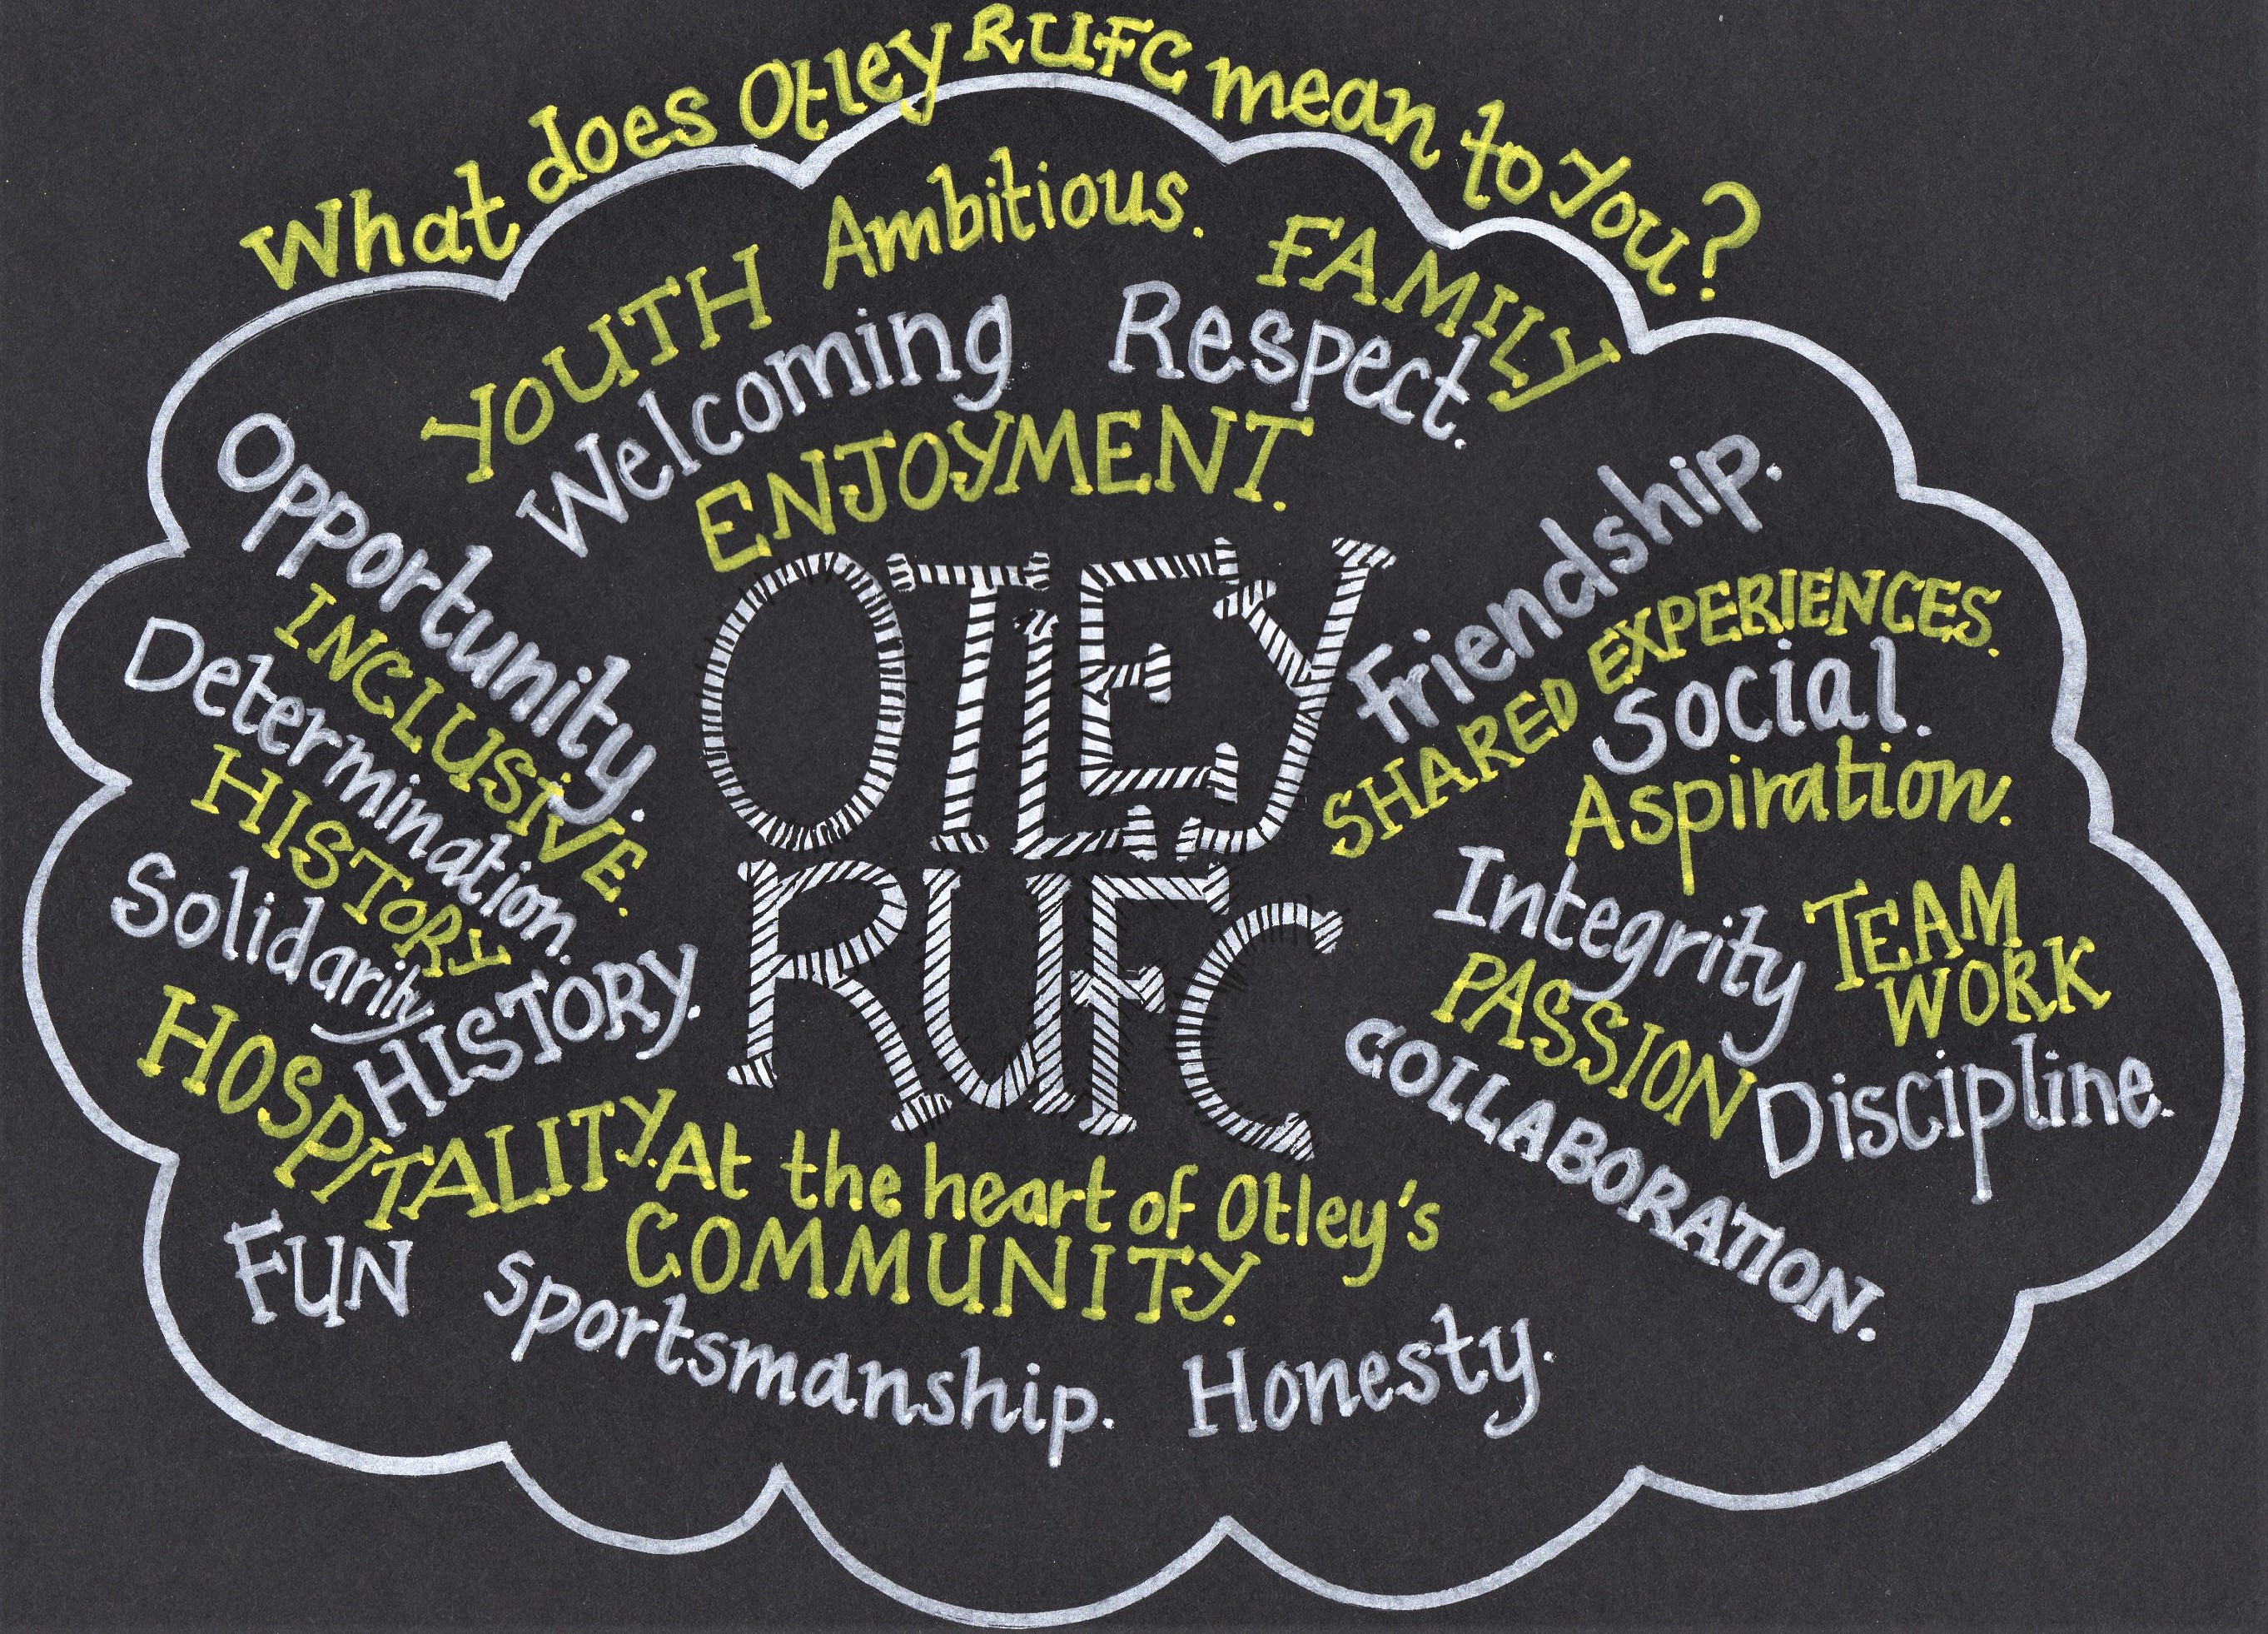 What does Otley RUFC mean to You?
Ambitious.
YOUTH
FAMILY
Welcoming
Respect.
ENJOYMENT.
Opportunity.
INCLUSIVE.
Determination.
HISTORY
Solidarity
HISTORY.
HOSPITALITY.
OTLEY
RUFC
friendship.
SHARED EXPERIENCES.
Social.
Aspiration.
Integrity
TEAM
WORK
PASSION
Discipline.
COLLABORATION.
At the heart of Otley's
COMMUNITY.
FUN
Sportsmanship.
Honesty.